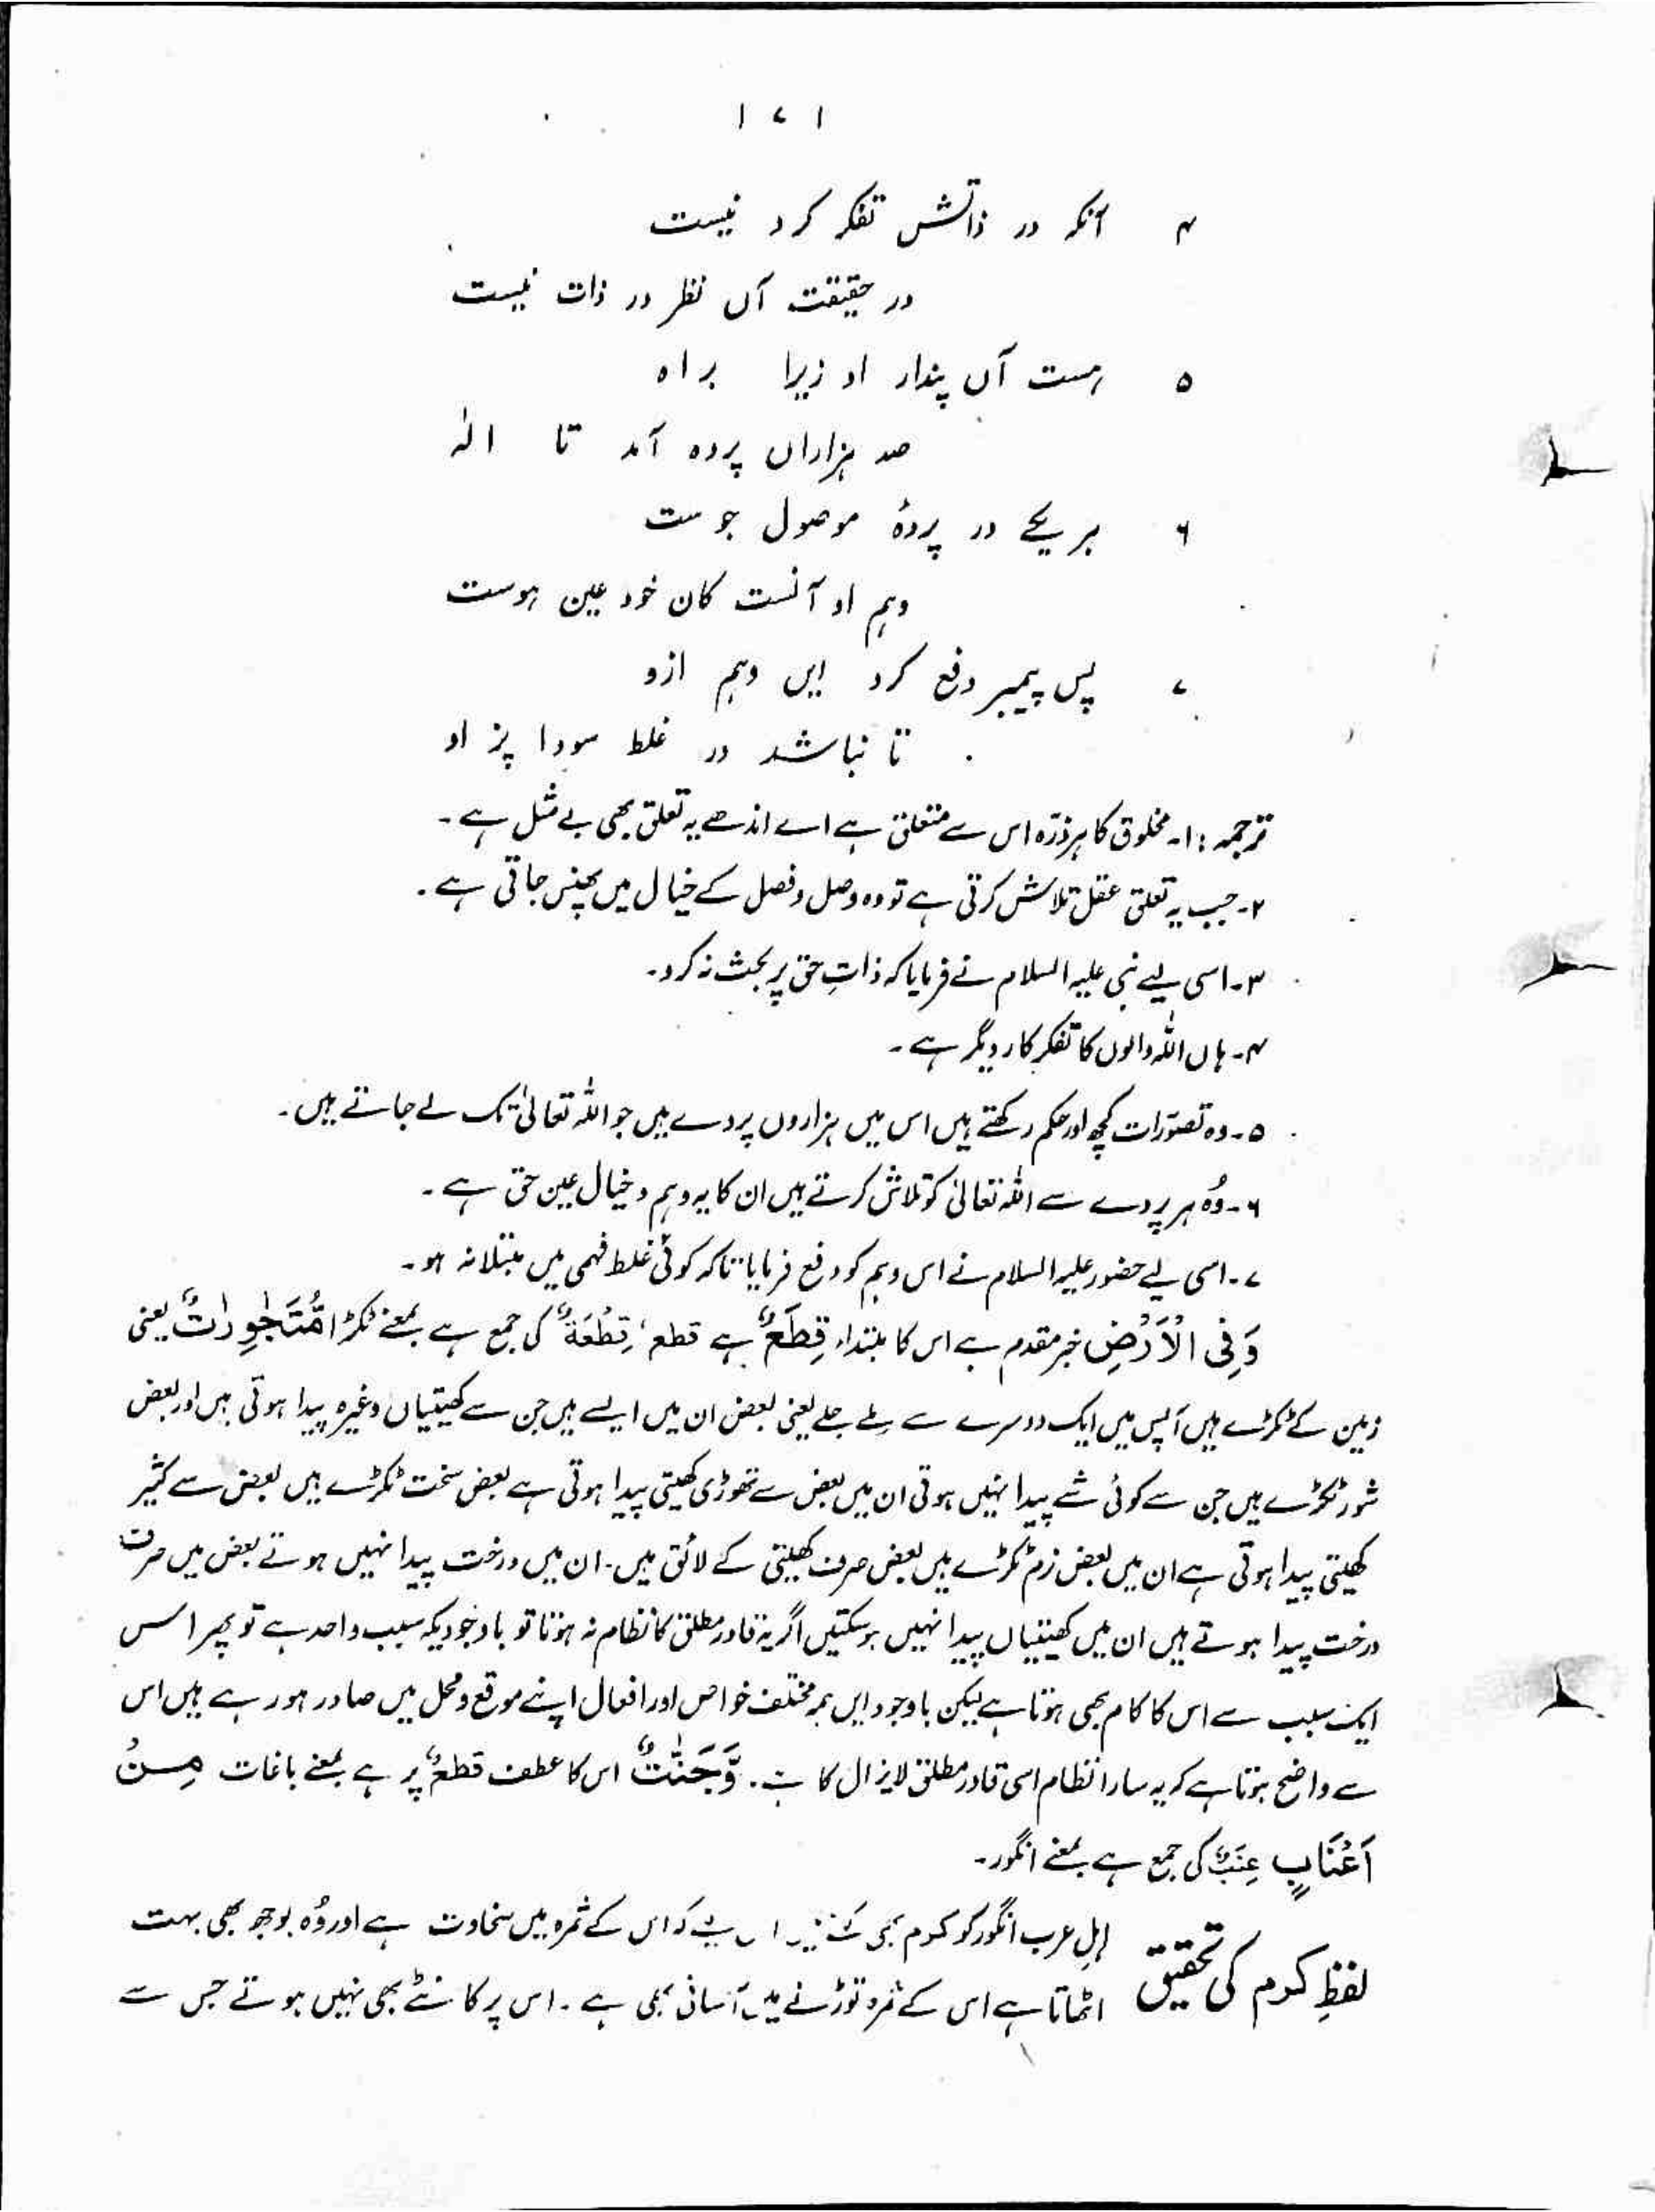 ۱۷۱
۴ آنکہ در ذاتش تفکر کرد نیست
در حقیقت آں نظر در ذات نیست
۵ ہست آں پندار او زیرا براہ
صد ہزاراں پردہ آمد تا الٰہ
۶ ہریکے در پردۂ موصول جوست
وہم او آنست کان خود عین ہوست
۷ پس پیمبر دفع کرد ایں وہم ازو
تا نباشد در غلط سودا پز او
ترجمہ: ۱۔ مخلوق کا ہر ذرّہ اس سے متعلق ہے اے اندھے یہ تعلق بھی بے مثل ہے۔
۲۔ جب یہ تعلق عقل تلاش کرتی ہے تو وہ وصل و فصل کے خیال میں پھنس جاتی ہے۔
۳۔ اسی لیے نبی علیہ السلام نے فرمایا کہ ذاتِ حق پر بحث نہ کرو۔
۴۔ ہاں اللہ والوں کا تفکر کار دیگر ہے۔
۵۔ وہ تصوّرات کچھ اور حکم رکھتے ہیں اس میں ہزاروں پردے ہیں جو اللہ تعالیٰ تک لے جاتے ہیں۔
۶۔ وُہ ہر پردے سے اللہ تعالیٰ کو تلاش کرتے ہیں ان کا یہ وہم و خیال عین حق ہے۔
۷۔ اسی لیے حضور علیہ السلام نے اس وہم کو دفع فرمایا تاکہ کوئی غلط فہمی میں مبتلا نہ ہو۔
وَفِی الْاَرْضِ خبر مقدم ہے اس کا مبتداء قِطَعٌ ہے قطع، قِطْعَۃٌ کی جمع ہے بمعنے ٹکڑا مُّتَجٰوِرٰتٌ یعنی
زمین کے ٹکڑے ہیں آپس میں ایک دوسرے سے ملے جلے یعنی بعض ان میں ایسے ہیں جن سے کھیتیاں وغیرہ پیدا ہوتی ہیں اور بعض
شور ٹکڑے ہیں جن سے کوئی شے پیدا نہیں ہوتی ان میں بعض سے تھوڑی کھیتی پیدا ہوتی ہے بعض سخت ٹکڑے ہیں بعض سے کثیر
کھیتی پیدا ہوتی ہے ان میں بعض نرم ٹکڑے ہیں بعض صرف کھیتی کے لائق ہیں۔ ان میں درخت پیدا نہیں ہوتے بعض میں صرف
درخت پیدا ہوتے ہیں ان میں کھیتیاں پیدا نہیں ہوسکتیں اگر یہ قادر مطلق کا نظام نہ ہوتا تو باوجودیکہ سبب واحد ہے تو پھر اس
ایک سبب سے اس کا کام بھی ہوتا ہے لیکن باوجود ایں ہمہ مختلف خواص اور افعال اپنے موقع و محل میں صادر ہو رہے ہیں اس
سے واضح ہوتا ہے کہ یہ سارا نظام اسی قادر مطلق لایزال کا ہے۔ وَّجَنّٰتٌ اس کا عطف قطعٌ پر ہے بمعنے باغات مِنْ
اَعْنَابٍ عِنَبٌ کی جمع ہے بمعنے انگور۔
لفظِ کرم کی تحقیق اہلِ عرب انگور کو کرم بھی کہتے ہیں اس لیے کہ اس کے ثمرہ میں سخاوت ہے اور وُہ بوجھ بھی بہت
اٹھاتا ہے اس کے ثمرہ توڑنے میں آسانی بھی ہے۔ اس پر کانٹے بھی نہیں ہوتے جس سے